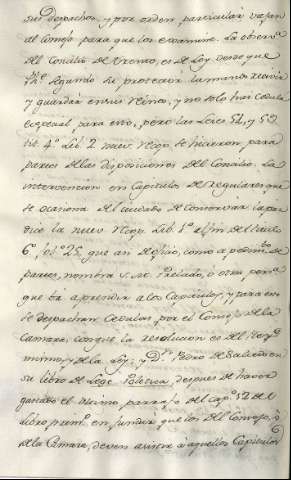 sus despachos, y por orden particular vajan
al Consejo para que los examine. La observ.ª
del Concilio de Trento, es de Ley desde que
Phe. Segundo le protexio la mando recivir
y guardar en sus Reinos, y no solo hai cedula
especial para esto, pero las Leies 51, y 59
tit. 4º Lib. 2 nuev. Recop. se hicieron para
parte de las disposiciones del Concilio. La
intervencion en Capitulos de Regulares, que
se ocasiona del cuidado de conservar la paz
dice la nueva Recop. Lib. 1º al fin del titulo
6º fol. 25, que an de oficio, como a pedim.to de
partes, nombra S. M. Prelado, o otra pers.ª
que va a presidir a los Capitulos, y para esto
se despachan Cedulas, por el Consejo de la
Camara, conque la resolucion es del Rey
mismo, y de la Ley: y D.n Pedro de Salcedo en
su libro de Lege Politica, despues de haver
gastado el ultimo parrafo del cap.º 12 del
libro prim.º en fundar que los del Consejo, o
de la Camara, deven asistir a aquellos Capitulos